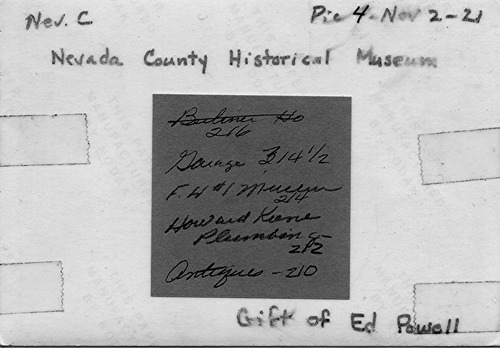 Nev. C
Pic 4 - Nov 2-21
Nevada County Historical Museum
Ho
216
Garage 314 1/2
F. H #1 Museum
214
Howard Keene
Plumbing -
212
Antiques - 210
Gift of Ed Powell